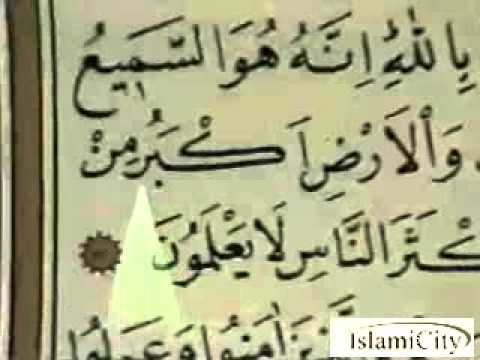 بِاللّٰهِ اِنَّهُ هُوَ السَّمٖيعُ
وَالْاَرْضِ اَكْبَرُ مِنْ
كْثَرَ النَّاسِ لَا يَعْلَمُونَ
اٰمَنُوا وَعَمِلُوا
IslamiCity